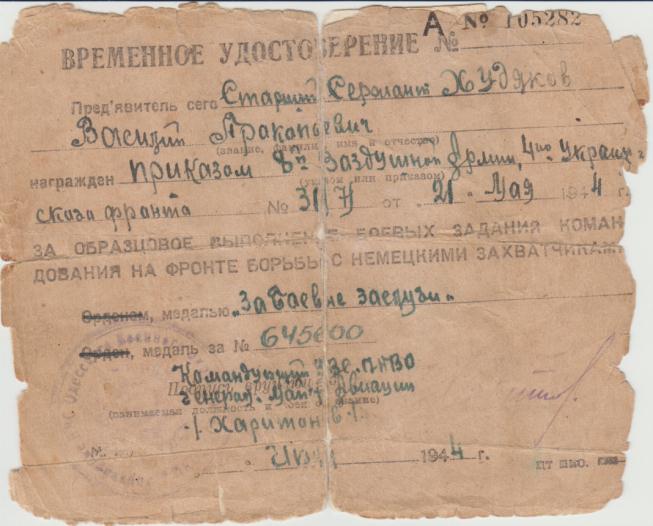 А № 105282
ВРЕМЕННОЕ УДОСТОВЕРЕНИЕ №
Пред'явитель сего Старший Сержант Худяков
Василий Пракопьевич
(звание, фамилия, имя и отчество)
награжден приказом 8й Воздушной Армии, 4го Украин
(указом или приказом)
скога фронта № 31/Н от 21. Мая 1944 г.
ЗА ОБРАЗЦОВОЕ ВЫПОЛНЕНИЕ БОЕВЫХ ЗАДАНИЯ КОМАН
ДОВАНИЯ НА ФРОНТЕ БОРЬБЫ С НЕМЕЦКИМИ ЗАХВАТЧИКАМИ
Орденом, медалью „За Баевые заслуги"
Орден, медаль за № 645600
Командующий ПВО
Генерал-Май Авиации
(занимаемая должность и
Харитонов
М.
1944 г.